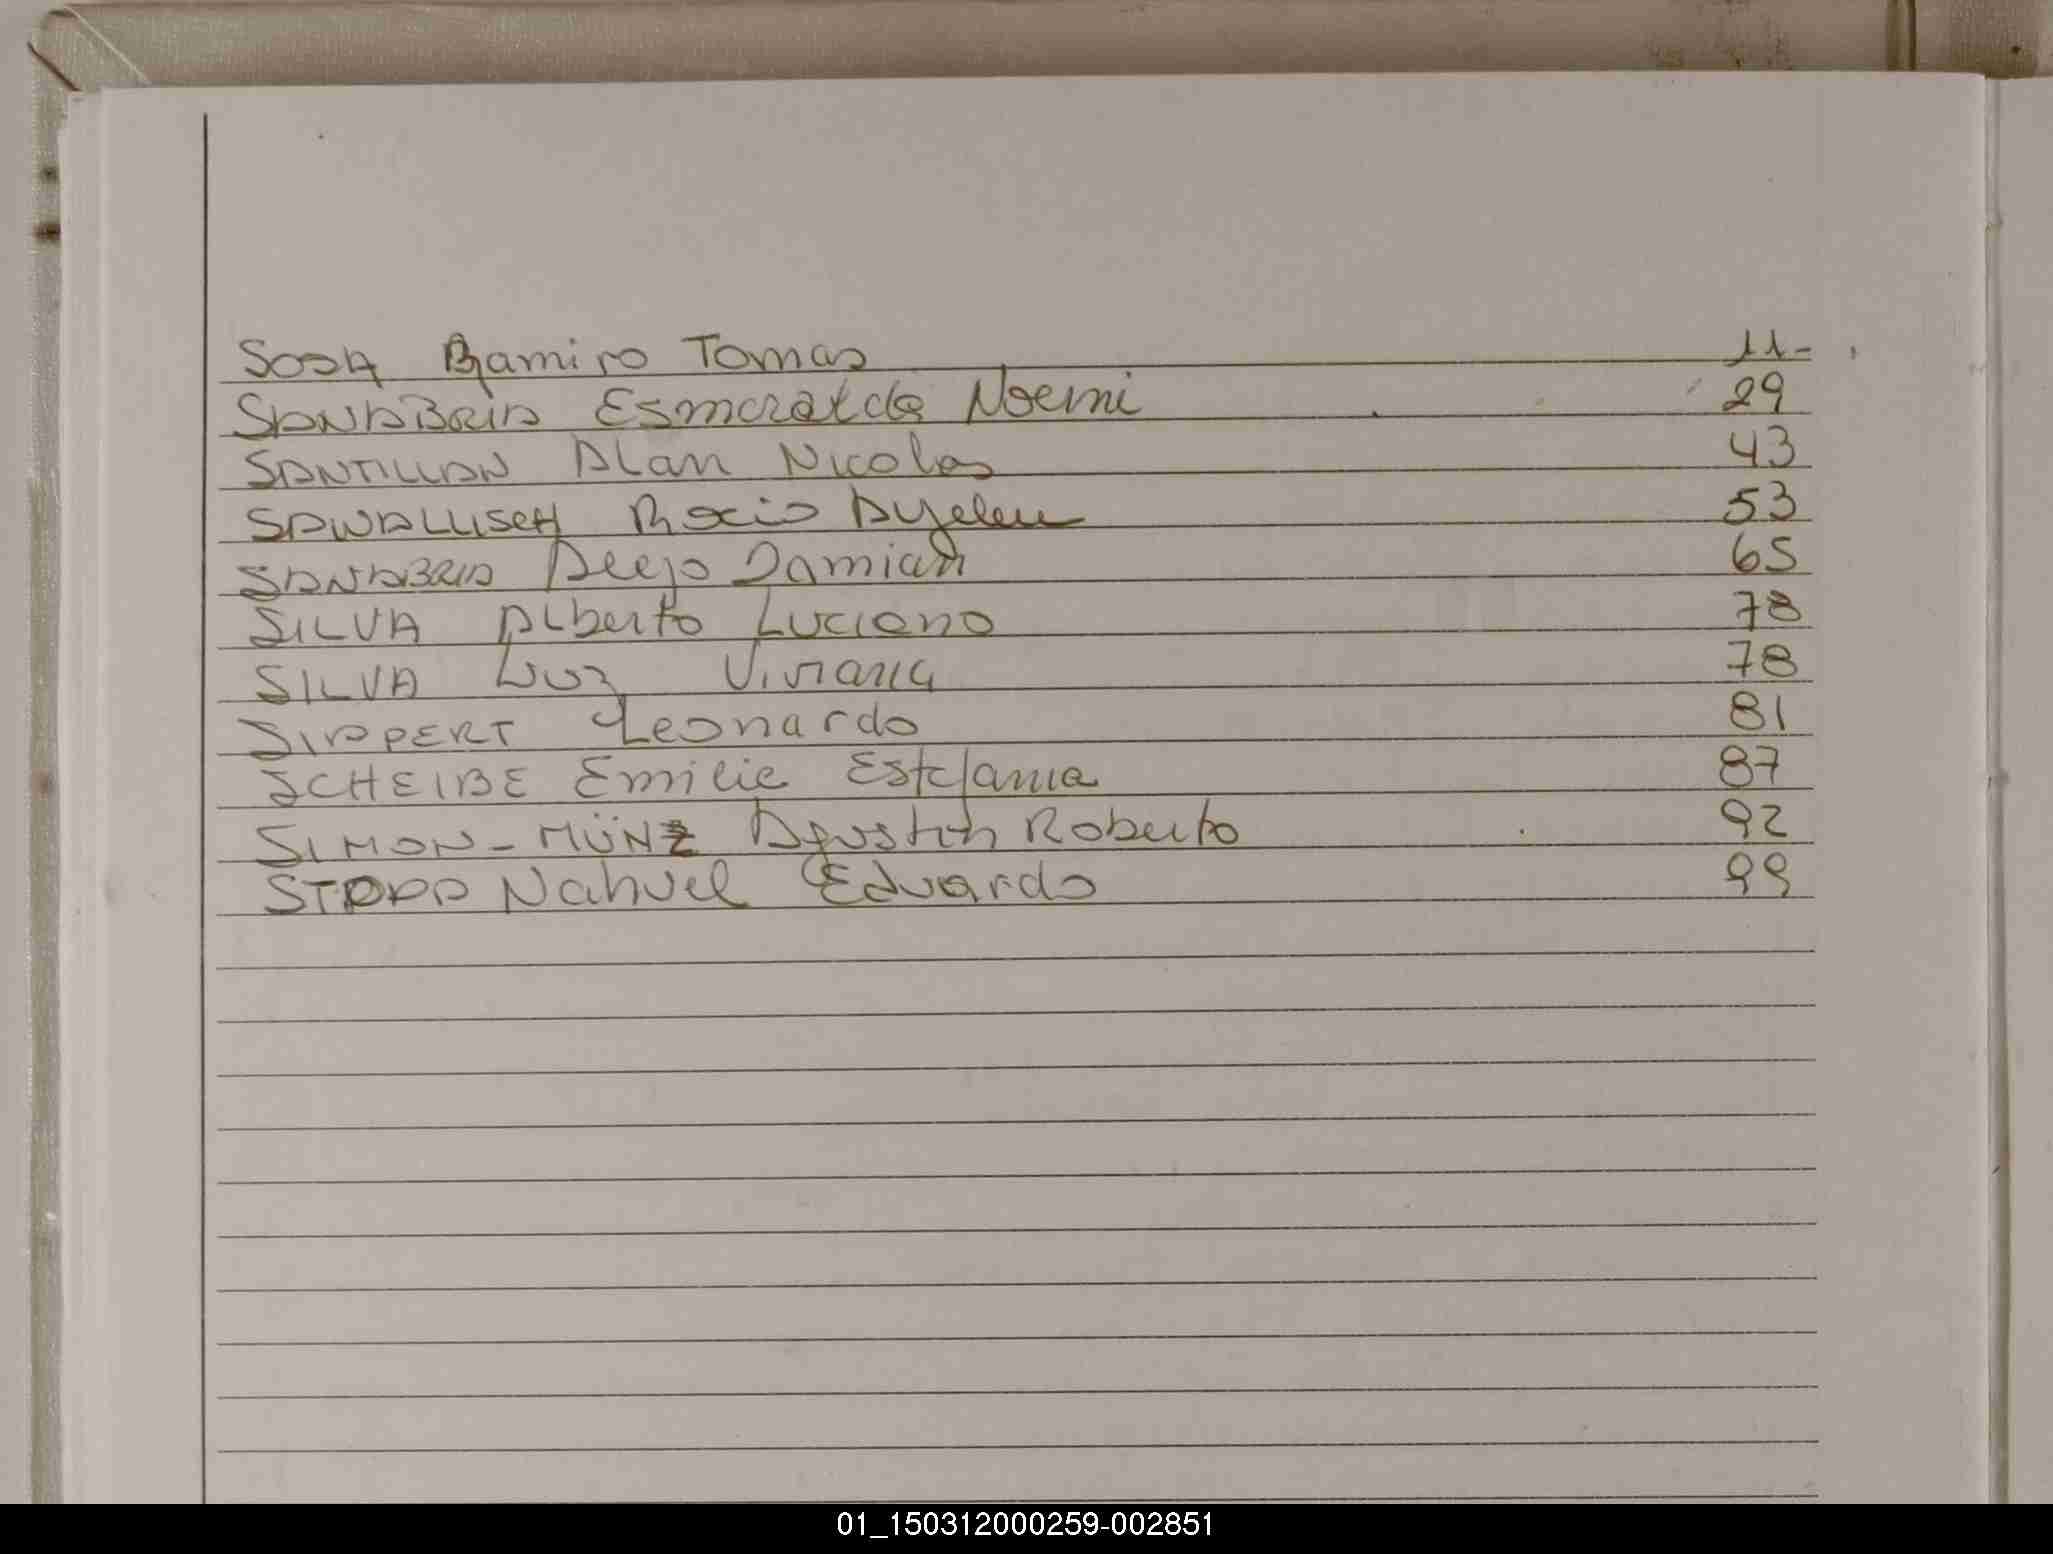 SOSA Ramiro Tomas 11-
SANABRIA Esmeralda Noemi 29
SANTILLAN Alan Nicolas 43
SAWALLISCH Rocio Ayelen 53
SANABRIA Alejo Damian 65
SILVA Alberto Luciano 78
SILVA Luz Viviana 78
SIPPERT Leonardo 81
SCHEIBE Emilie Estefania 87
SIMON-MÜNZ Agustin Roberto 92
Nahuel Eduardo 99
01_150312000259-002851